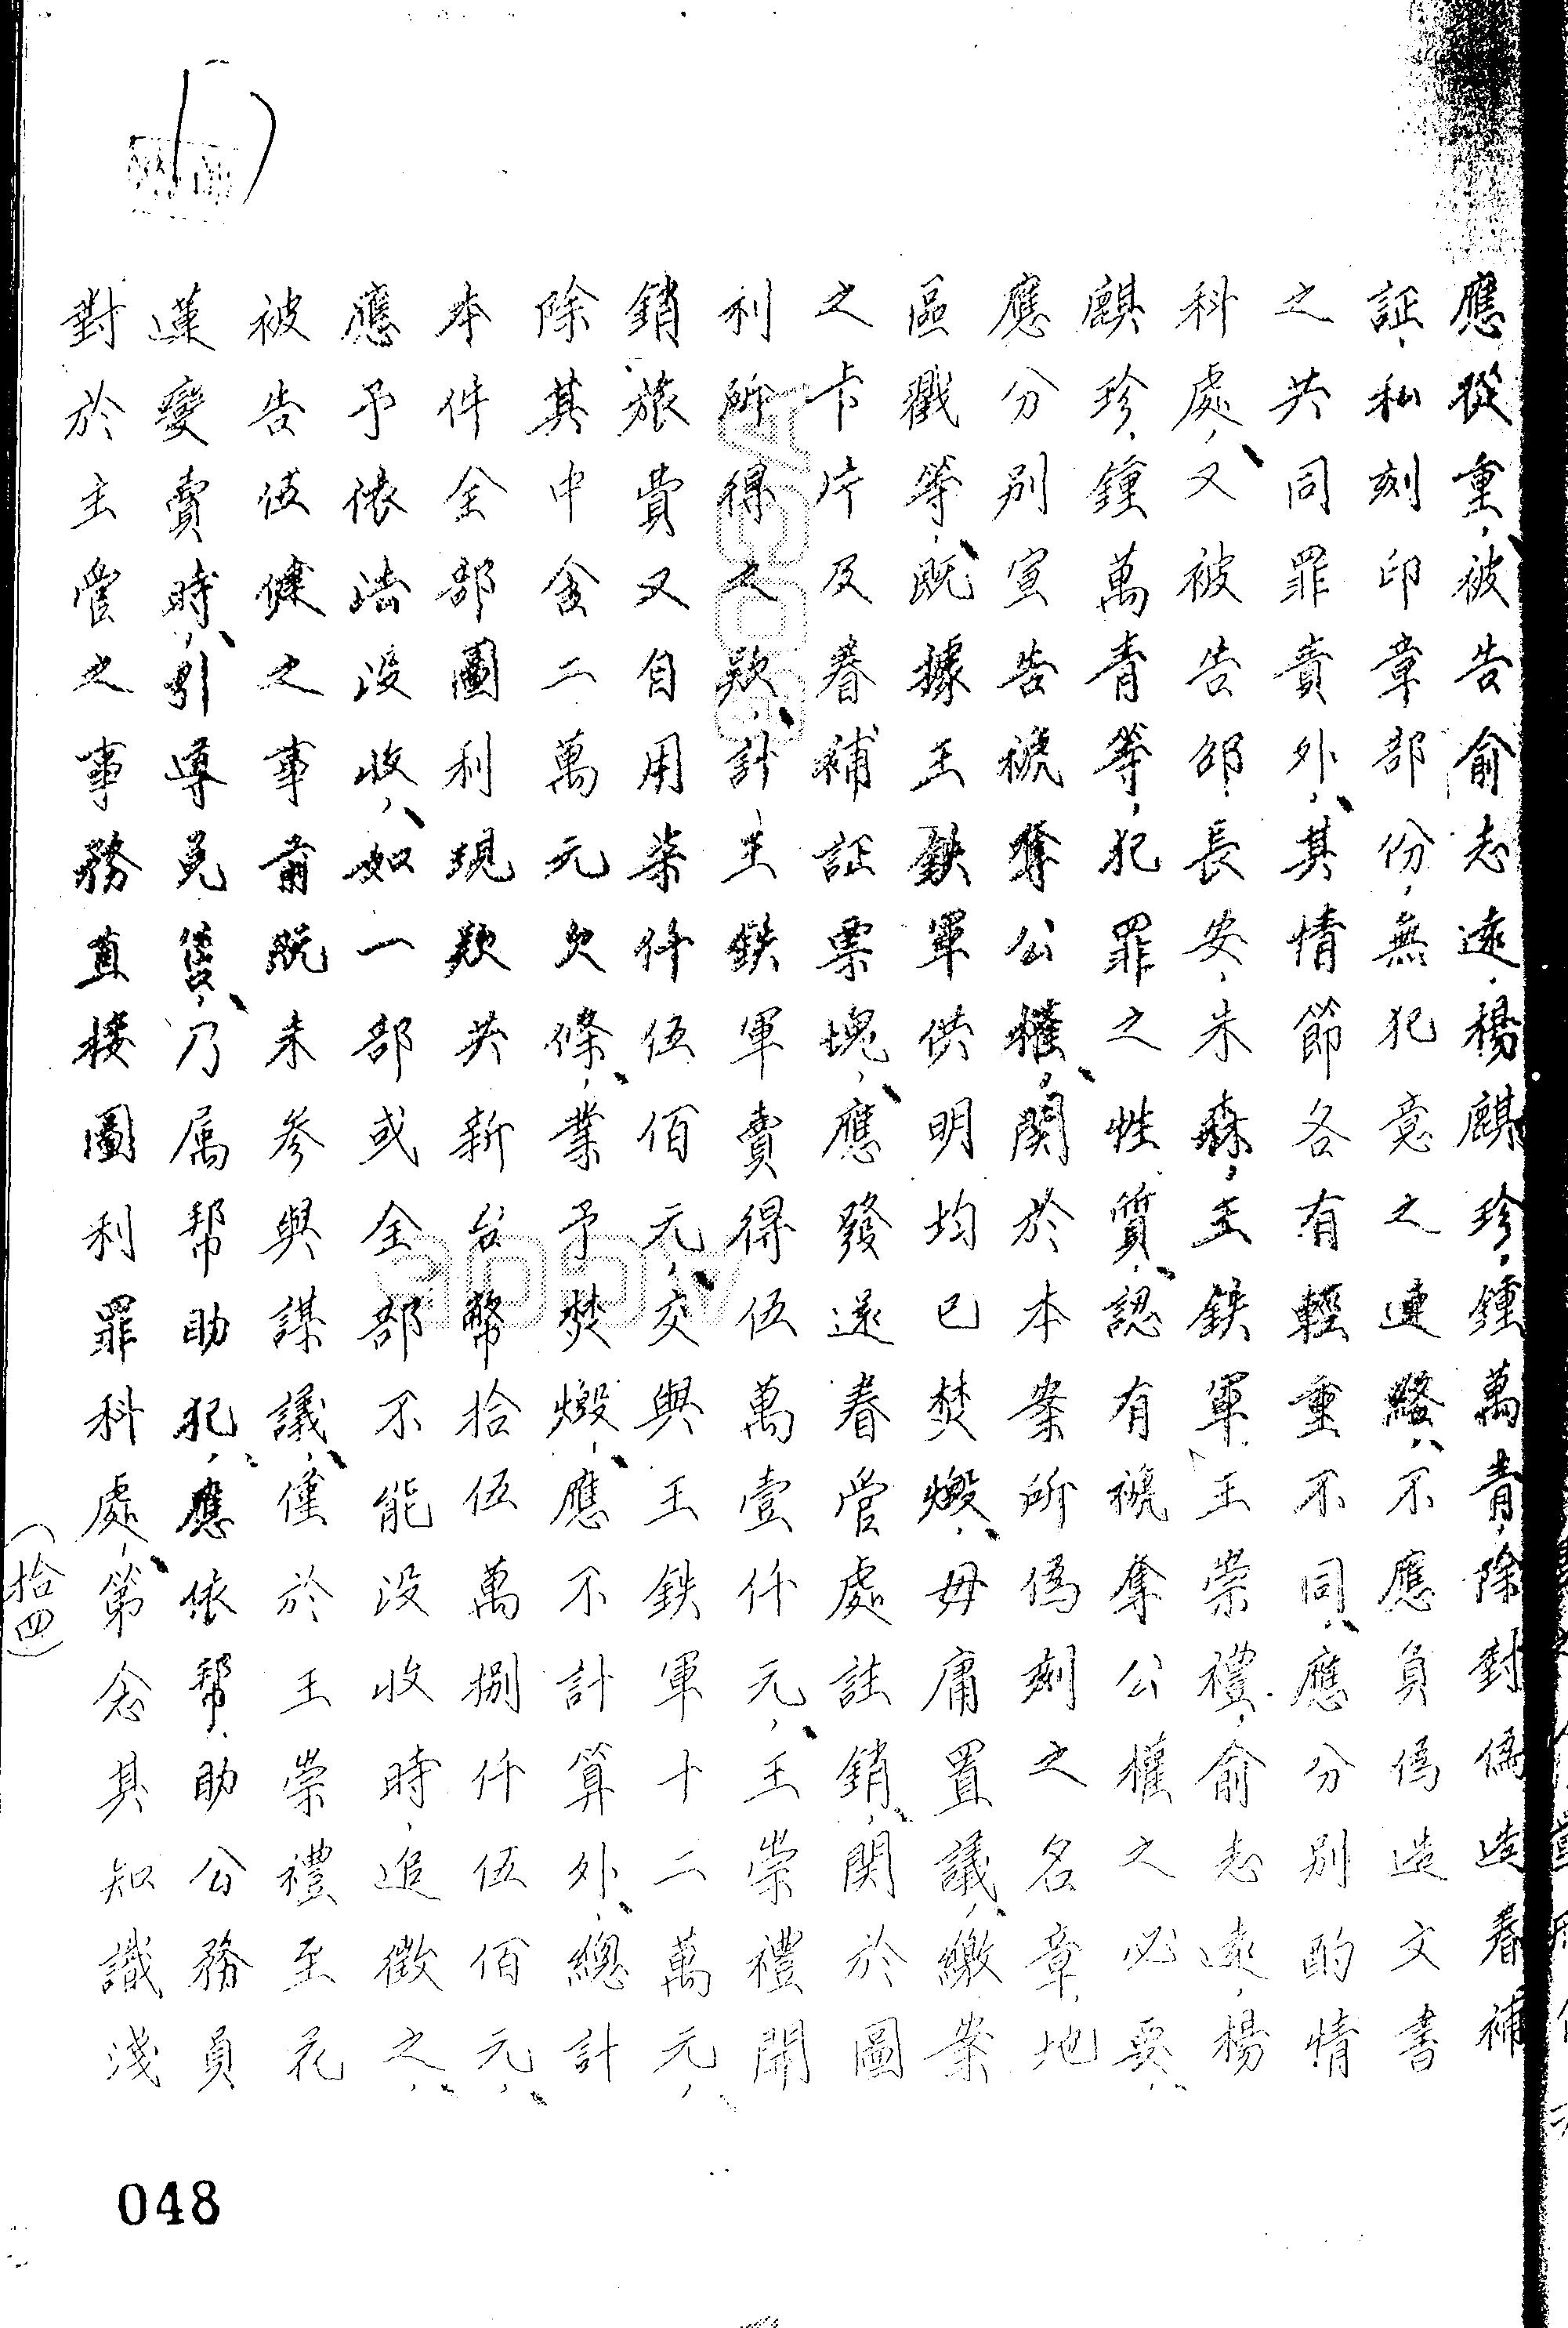 應從重，被告俞志遠，楊麒珍，鍾萬青，除對偽造眷補
証，私刻印章部份，無犯意之連絡，不應負偽造文書
之共同罪責外，其情節各有輕重不同，應分別酌情
科處，又被告邵長安，朱森，王鉄軍，王崇禮，俞志遠，楊
麒珍，鍾萬青等，犯罪之性質，認有褫奪公權之必要，
應分別宣告褫奪公權，関於本案所偽刻之名章，地
區戳等，既據王鉄軍供明均已焚燬，毋庸置議，繳案
之卡片及眷補証票塊，應發還眷管處註銷，関於圖
利所得之欵，計王鉄軍賣得伍萬壹仟元，王崇禮開
銷旅費又自用柒仟伍佰元，交與王鉄軍十二萬元，
除其中含二萬元欠條，業予焚燬，應不計算外，總計
本件全部圖利現欵共新台幣拾伍萬捌仟伍佰元，
應予依法沒收，如一部或全部不能沒收時，追徵之，
被告伍健之事前既未參與謀議，僅於王崇禮至花
蓮變賣時，引導兜售，乃属帮助犯，應依帮助公務員
對於主管之事務直接圖利罪科處，第念其知識淺
（拾四）
048